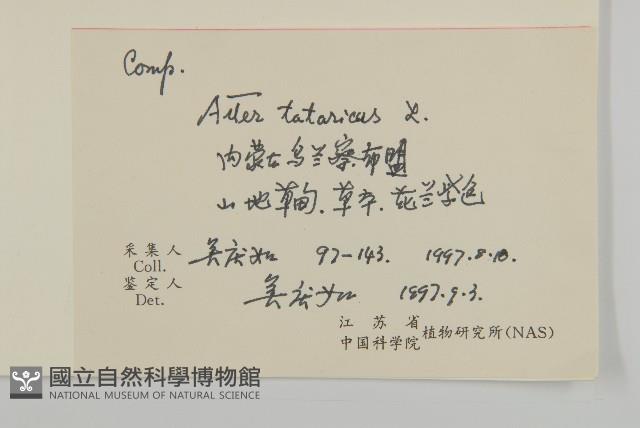 Comp.
Aster tataricus L.
内蒙古乌兰察布盟
山地草甸、草本、花兰紫色
采集人 吴庆如 97-143. 1997.8.18.
Coll.
鉴定人 吴庆如 1997.9.3.
Det.
江苏省
中国科学院 植物研究所(NAS)
國立自然科學博物館
NATIONAL MUSEUM OF NATURAL SCIENCE